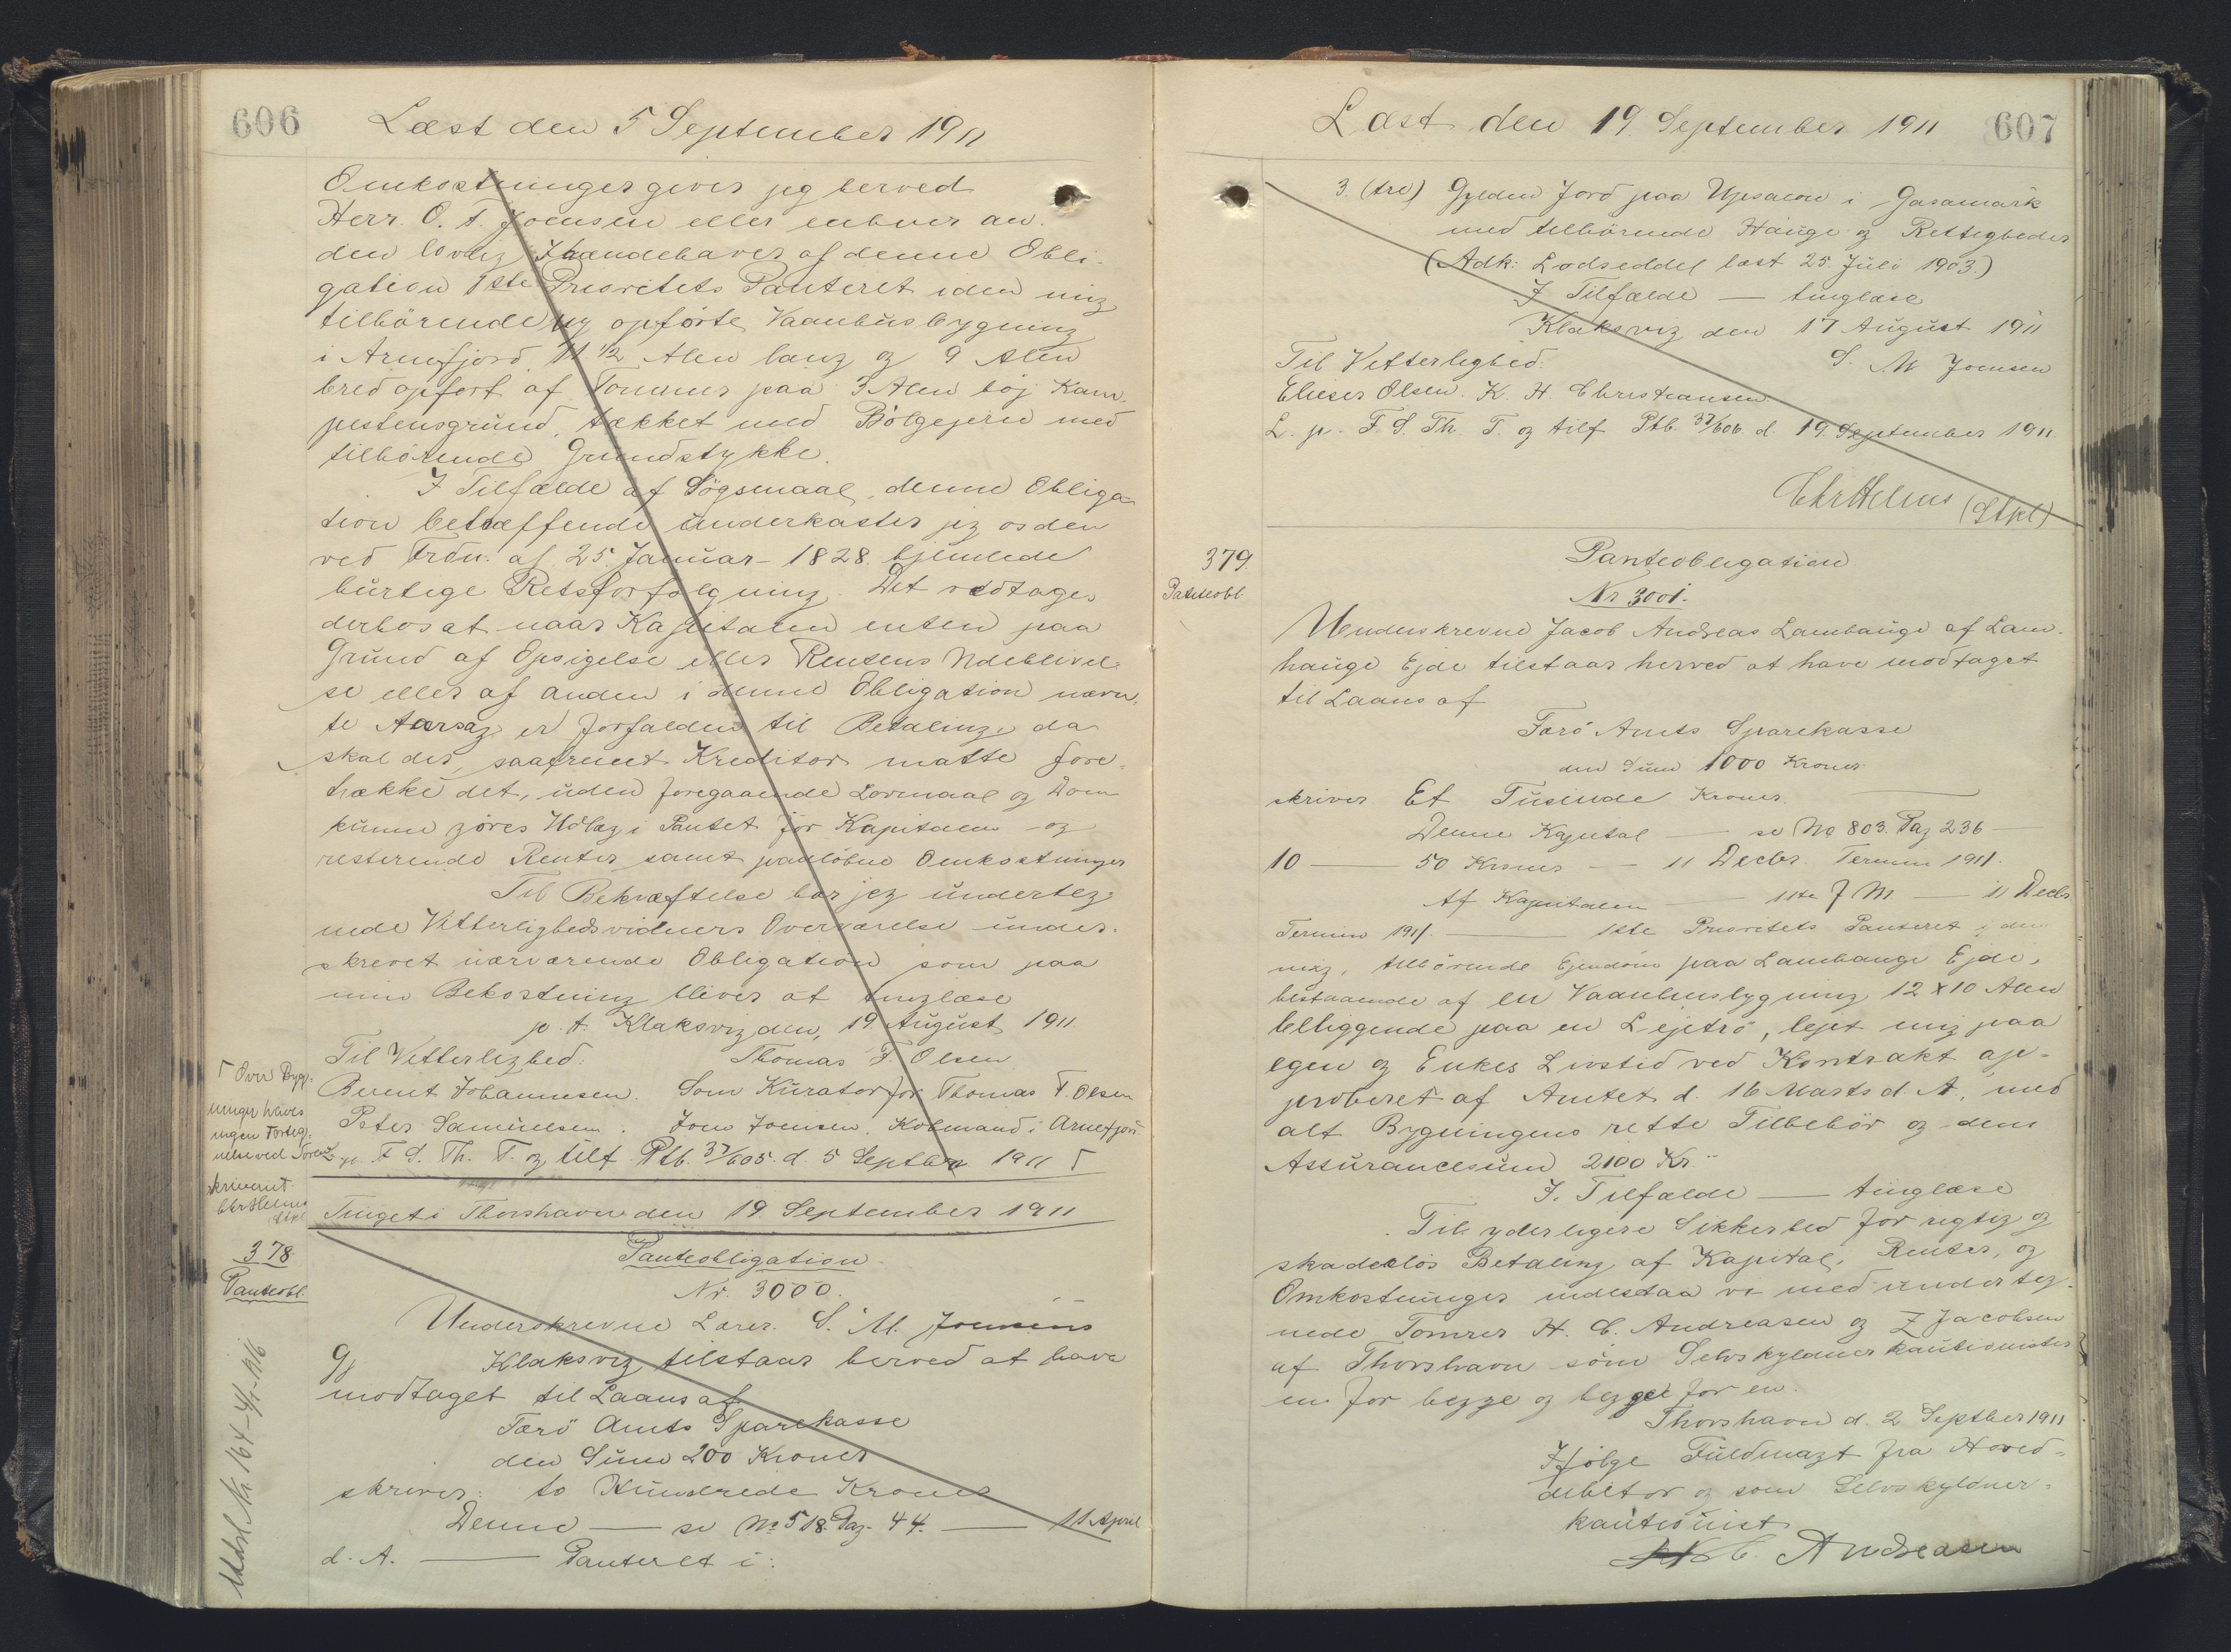 606
Læst den 5 September 1911
Omkostninger giver jeg herved
Herr. O. F. Joensen eller enhver an-
den lovlig Ihændehaver af denne Obli-
gation 1ste Prioritets Panteret i den mig
tilhörende ny opförte Vaanhusbygning
i Arnefjord 11 1/2 Alen lang og 9 Alen
bred opfört af Tömmer paa 3 Alen höj Kam-
pestensgrund, tækket med Bölgejern med
tilhörende Grundstykke.
I Tilfælde af Sögsmaal denne Obliga
tion betræffende underkaster jeg os den
ved Frdn. af 25. Januar - 1828 hjemlede
hurtige Retsforfölgning. Det vedtages
derhos at naar Kapitalen enten paa
Grund af Opsigelse eller Rentens Udeblivel-
se eller af anden i denne Obligation nævn-
te Aarsag er forfalden til Betaling, da
skal der, saafremt Kreditor maatte fore-
trække det, uden foregaaende Lovmaal og Dom
kunne göres Udlæg i Pantet för Kapitalen og
resterende Renter samt paalöbne Omkostninger
Til Bekræftelse har jeg underteg-
nede Vitterlighedsvidners Overværelse under-
skrevet nærværende Obligation som paa
min Bekostning bliver at tinglæse
p. t. Klaksvig den, 19. August 1911
Til Vitterlighed: Thomas F. Olsen
Berent Johannesen. Som Kurator for Thomas F. Olsen
Peter Samuelsen. Joen Joensen. Köbmand i Arnefjord
L. p. F. S. Th. T. og tilf Ptb. 37/605. d. 5 Septbr 1911 Γ
Γ Over Bygg-
ninger haves
ingen Forteg-
nelse ved Soren-
skriveriet
Chr Helms
Stkl
Tinget i Thorshavn den 19 September 1911
378.
Panteobl.
Panteobligation
Nr. 3000.
Underskrevne Lærer. S. M. Joensens
Klaksvig tilstaar herved at have
modtaget til Laans af
Færö Amts Sparekasse
den Sum 200 Kroner
skriver: to Hundrede Kroner
Denne — se No 518. Pag. 44. — 11 April
d. A. — Panteret i:
Udsl. Nr 164 - 4/4 - 1916
Læst den 19. September 1911
607
3. (tre) Gylden Jord paa Upsalon i Gasamark
med tilhörende Hauge og Rettigheder
(Adk: Lodseddel læst 25. Juli 1903.)
I Tilfælde — tinglæse
Klaksvig den 17 August 1911
Til Vitterlighed: S. M Joensen
Elieser Olsen. K. H. Christiansen
L. p. F. S. Th. T. og tilf Ptb. 37/606. d. 19 September 1911.
Chr Helms (Stkl)
379.
Panteobl
Panteobligation
Nr 3001.
Underskrevne Jacob Andreas Lambauge af Lam-
hauge Ejde tilstaar herved at have modtaget
til Laans af
Færö Amts Sparekasse
den Sum 1000 Kroner
skriver Et Tusinde Kroner.
Denne Kapital — se No 803. Pag 236 —
10 — 50 Kroner — 11 Decbr. Termin 1911.
Af Kapitalen — 11te J M — 11 Decbr
Termin 1911. — 1ste Prioritets Panteret i den
mig, tilhörende Ejendom paa Lambauge Ejde,
bestaaende af en Vaanhusbygning 12 x 10 Alen
belliggende paa en Lejetrö, lejet mig paa
egen og Enkes Livstid ved Kontrakt ap-
proberet af Amtet d. 16 Marts d. A., med
alt Bygningens rette Tilbehör og dens
Assurancesum 2100 Kr.
I. Tilfælde — tinglæse
Til yderligere Sikkerhed for rigtig og
skadeslös Betaling af Kapital, Renter, og
Omkostninger indestaa vi medunderteg-
nede Tömrer H. C. Andreasen og Z Jacobsen
af Thorshavn som Selvskyldnerkautionister
en for begge og begge for en.
Thorshavn d. 2 Septber 1911
Ifölge Fuldmagt fra Hoved-
debitor og som Selvskyldner-
kautionist
H C. Andreasen